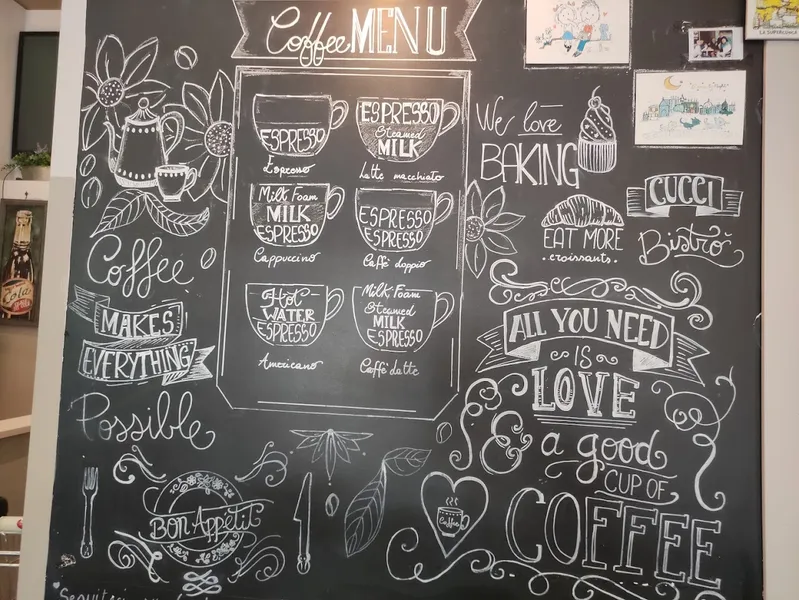 Coffee MENU
ESPRESSO
Espresso
ESPRESSO
Steamed
MILK
Latte macchiato
Milk Foam
MILK
ESPRESSO
Cappuccino
ESPRESSO
ESPRESSO
Caffè doppio
Hot
WATER
ESPRESSO
Americano
Milk Foam
Steamed
MILK
ESPRESSO
Caffè latte
Coffee
MAKES
EVERYTHING
Possible
Bon Appetit
We love
BAKING
EAT MORE
croissants
CUCCI
Bistrò
ALL YOU NEED
IS
LOVE
& a good
CUP OF
COFFEE
Coffee
Cold